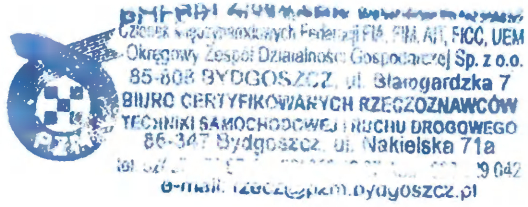 Członek Międzynarodowych Federacji FIA, FIM, AIT, FICC, UEM
Okręgowy Zespół Działalności Gospodarczej Sp. z o.o.
85-808 BYDGOSZCZ, ul. Starogardzka 7
BIURO CERTYFIKOWANYCH RZECZOZNAWCÓW
TECHNIKI SAMOCHODOWEJ I RUCHU DROGOWEGO
86-347 Bydgoszcz, ul. Nakielska 71a
042
e-mail: rzecz@pzm.bydgoszcz.pl
PZM